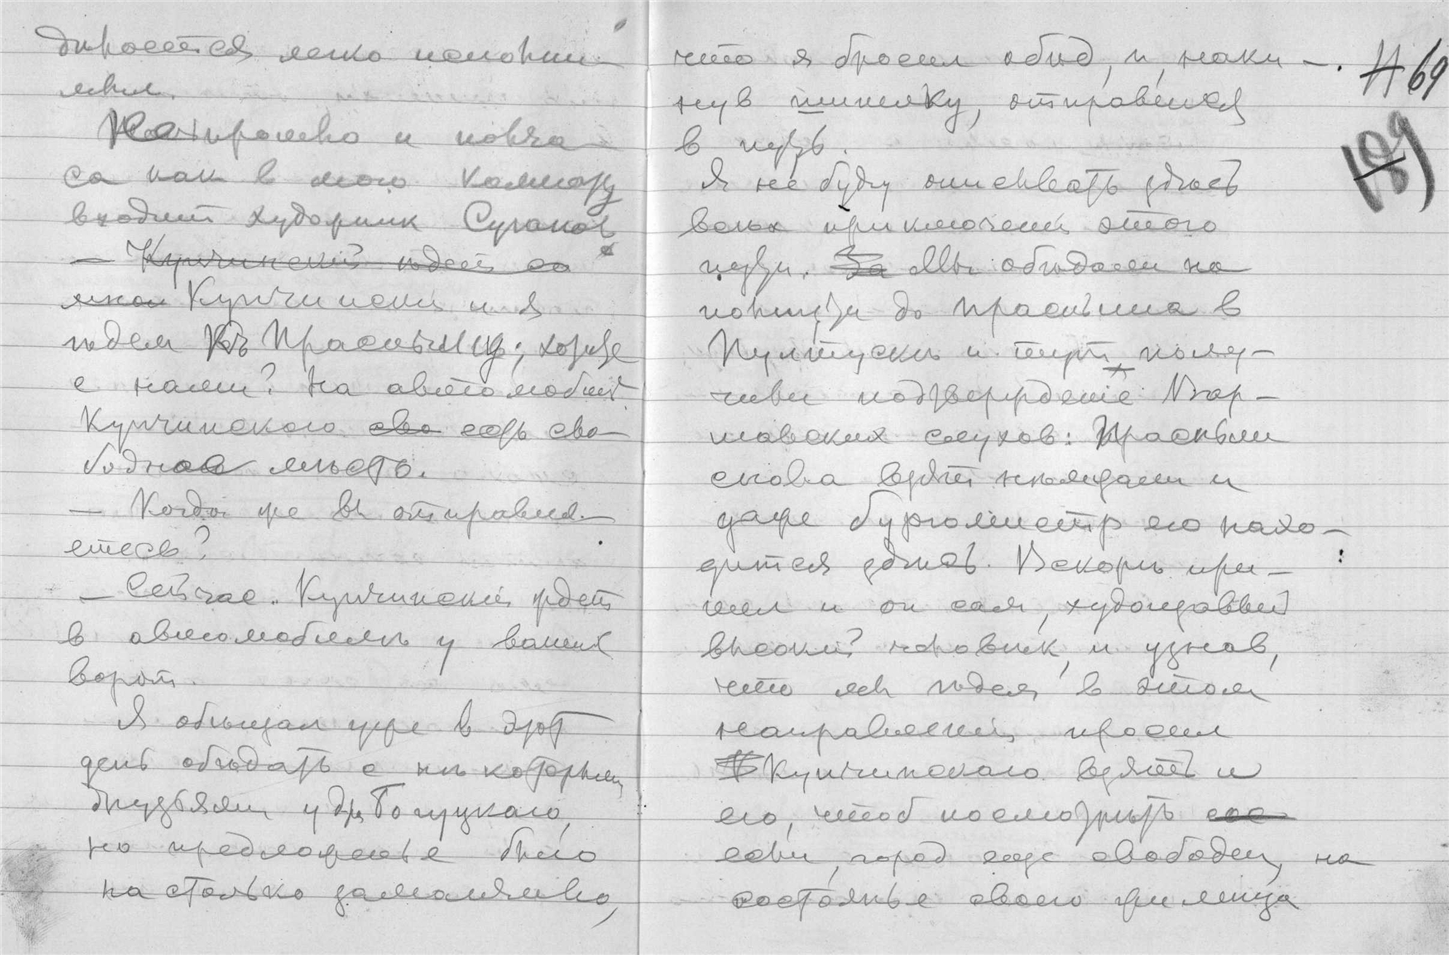 дирается легко
Не прошло и полча-
са как в мою комнату
входит художник Суханов
— Купчинский ѣдет со
мною Купчинский и я
ѣдем въ Праснышъ; хотите
с нами? На автомобилѣ
Купчинского есть сво-
бодное мѣсто.
— Когда же вы отправля-
етесь?
— Сейчас. Купчинский ждет
в автомобилѣ у ваших
ворот.
Я обѣщал уже в этот
день обѣдать с нѣкоторыми
друзьями у
но предложенье было
настолько заманчиво,
что я бросил обѣд, и, наки-
нув шинелку, отправился
в путь.
Я не буду описывать здѣсь
всѣх приключений этого
пути. За Мы обѣдали на
пол пути до Прасныша в
Пултускѣ и тут, полу-
чивши подтверждение Вар-
шавских слухов: Прасныш
снова взят нѣмцами и
даже бургомистр его нахо-
дится здѣсь. Вскорѣ при-
шел и он сам, худощавый
высокий человѣк, и узнав,
что мы ѣдем в этом
направлении, просил
Купчинского взять и
его, чтоб посмотрѣть
если город еще свободен, на
состоянье своего жилища
# 69
189